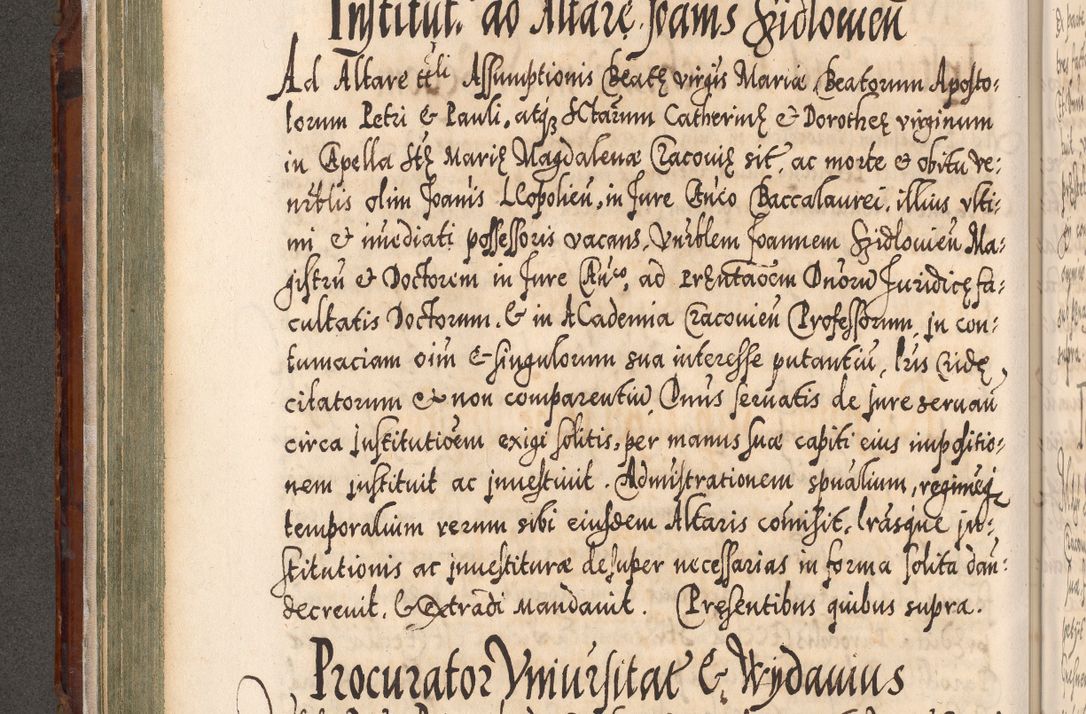 Institut. ad Altare Joanis Xidlowień
Ad Altare ttli Assumptionis Beatę virgis Mariæ, Beatorum Aposto:
lorum Petri & Pauli, atqꝫ Sctarum Catherinę & Dorotheę virginum
in Capella Stę Marię Magdalenæ Cracovię sit, ac morte & obitu ve:
nrblis olim Joanis LEopolień, in Jure Canco Baccalaurei, illius vlti:
mi & imediati possessoris vacans, Vnrblem Joannem Xidlowień Ma:
gistrū & Doctorem in Jure Canco, ad Pręntaōem Dnorū Juridicę fa:
cultatis Doctorum, & in ACademia Cracovień Professorum, in con:
tumaciam oim & singulorum sua interesse putantiū, lris Cridę
citatorum & non comparentiū, Dnus servatis de jure servań
circa institutioēm exigi solitis, per manus suæ capiti eius impositio:
nem instituit ac jnvestivit. Administrationem spualium, regimeqꝫ
temporalium rerum sibi eiusdem Altaris comisit, lrasque jn:
stitutionis ac jnvestituræ desuper necessarias in forma solita dan:
decrevit, & Extradi mandavit. Pręsentibus quibus supra.
Procurator Vniversitat & Wydavius